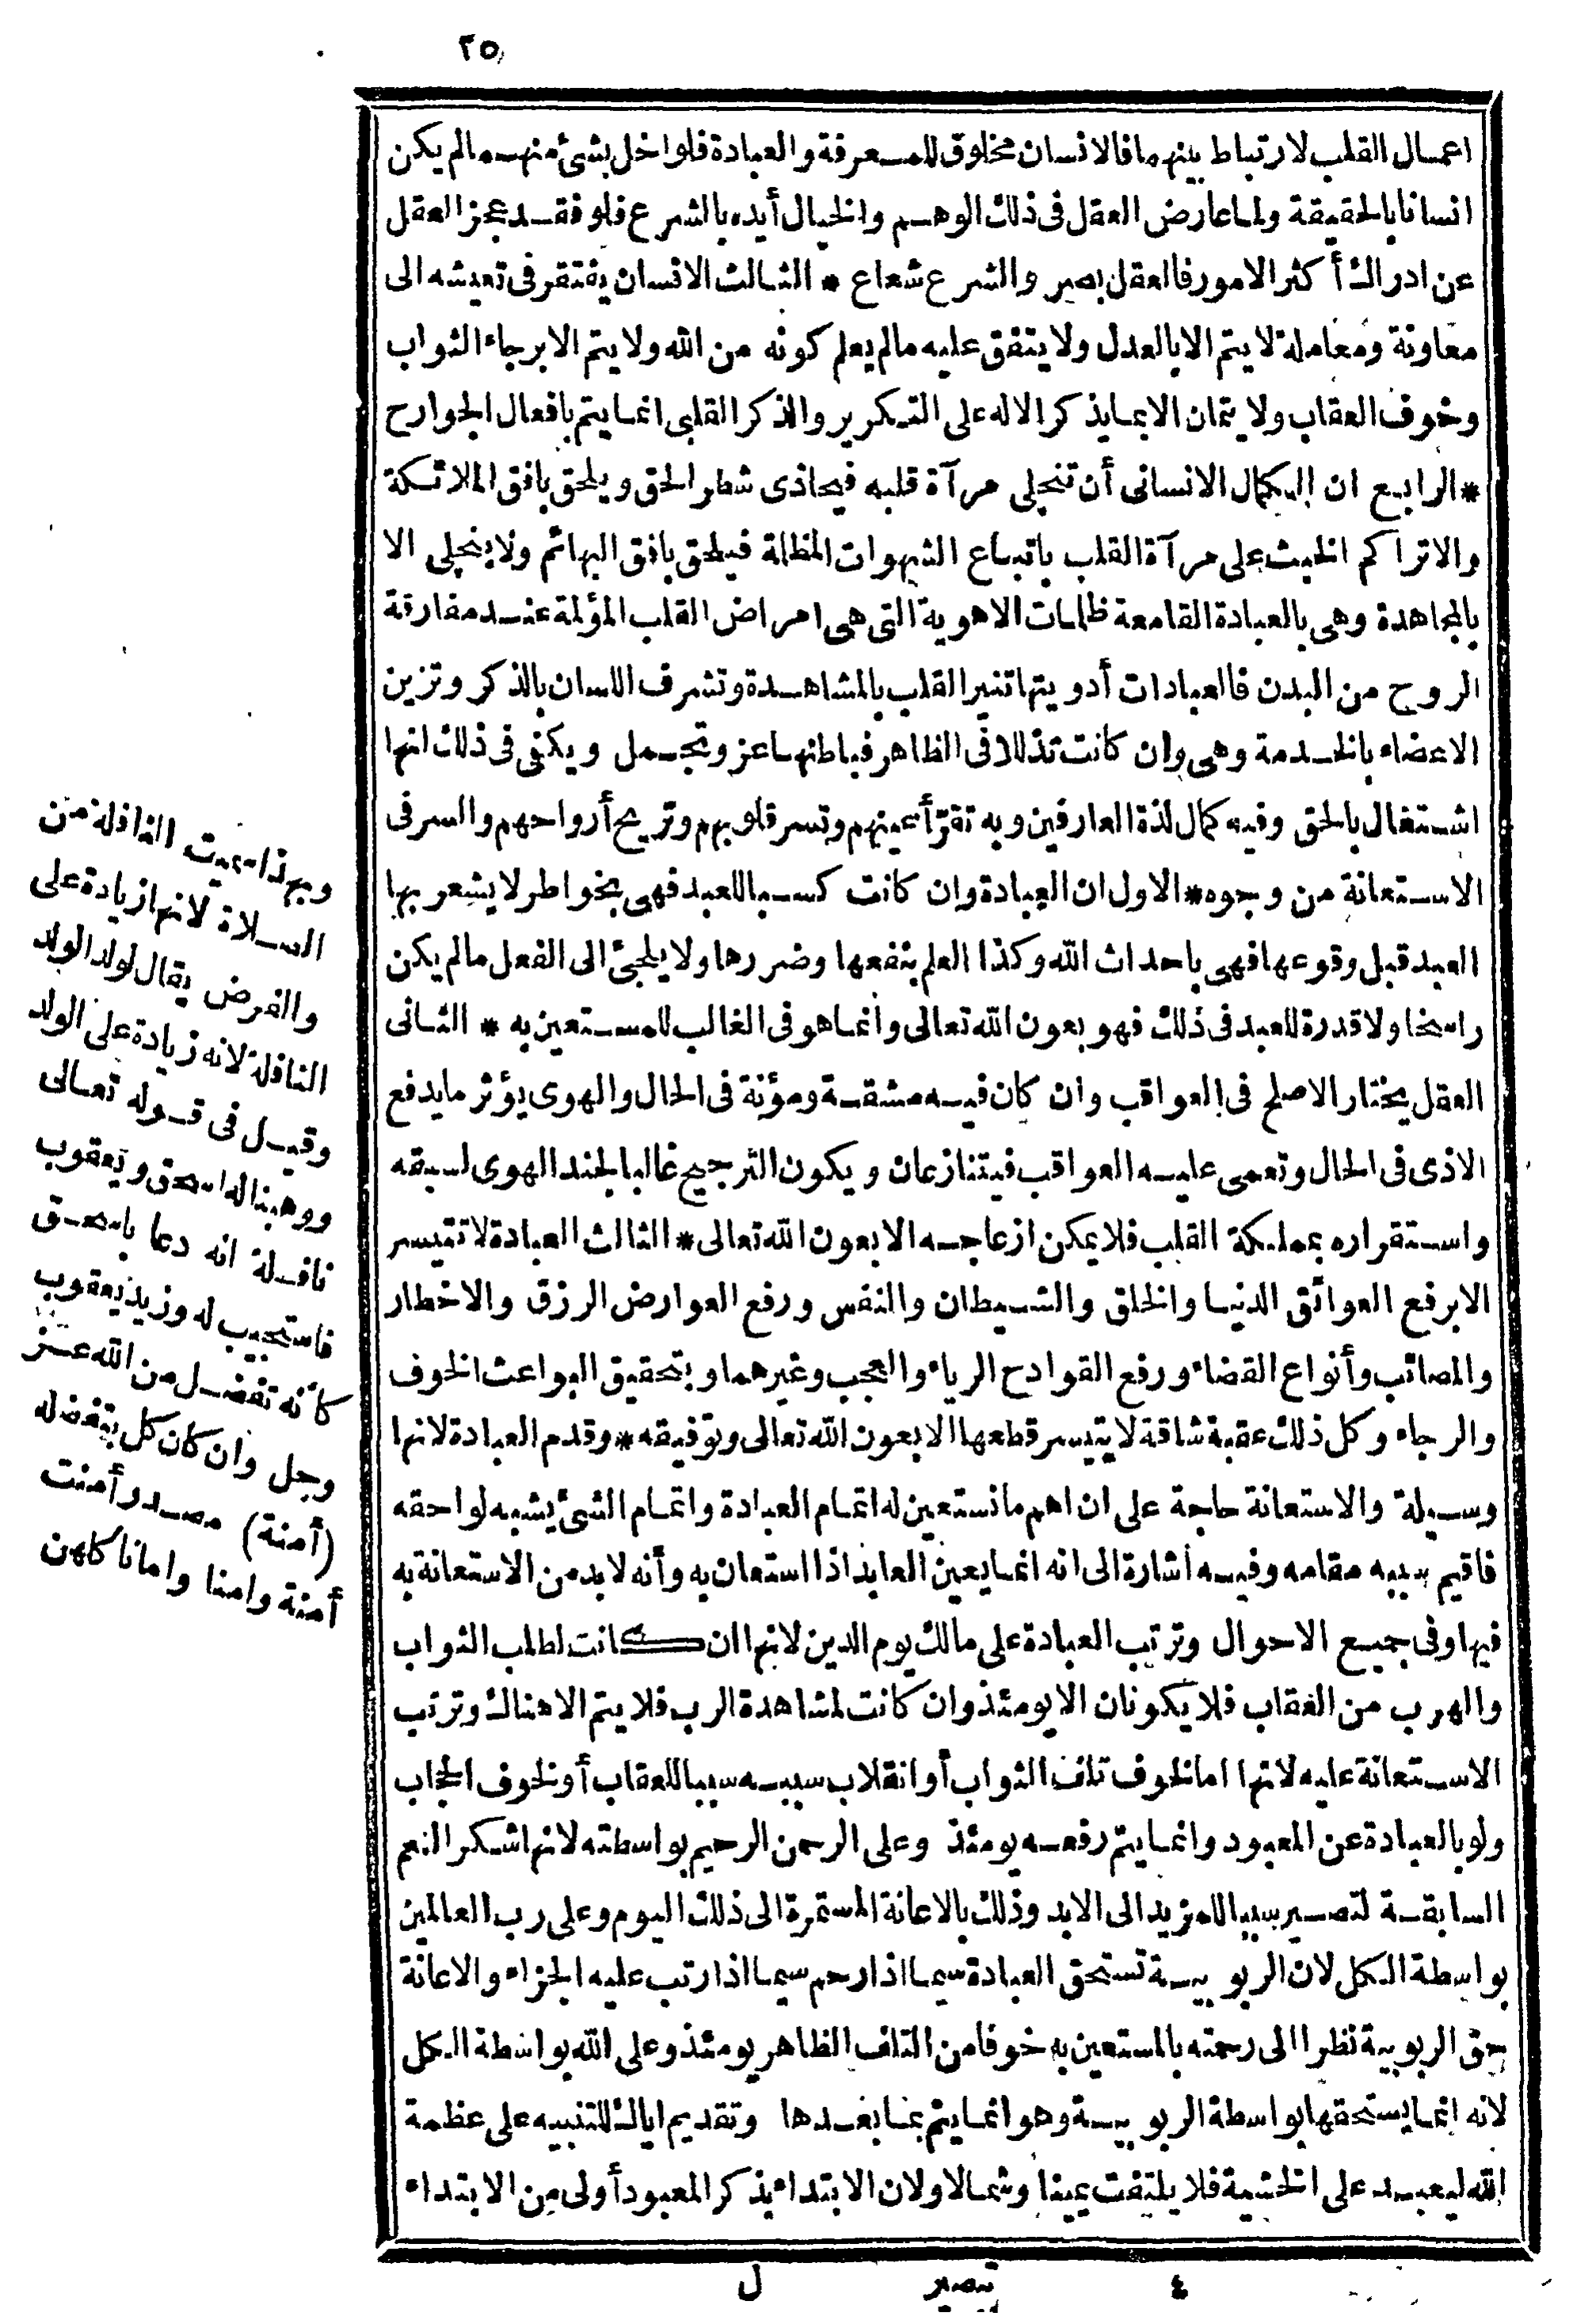 ٢٥
اعمال القلب لارتباط بينهما فالانسان مخلوق للمعرفة والعبادة فلو اخل بشئ منهما لم يكن
انسانا بالحقيقة ولما عارض العقل فى ذلك الوهم والخيال أيده بالشرع فلو فقد عجز العقل
عن ادراك أكثر الامور فالعقل بصر والشرع شعاع * الثالث الانسان يفتقر فى تعيشه الى
معاونة ومعاملة لا يتم الا بالعدل ولا يتفق عليه ما لم يعلم كونه من الله ولا يتم الا برجاء الثواب
وخوف العقاب ولا يتمان الا بما يذكر الاله على التكرير والذكر القلبى انما يتم بافعال الجوارح
* الرابع ان الكمال الانسانى أن تنجلى مرآة قلبه فيحاذى شطر الحق ويلحق بافق الملائكة
والا تراكم الخبث على مرآة القلب باتباع الشهوات المظلمة فيلحق بافق البهائم ولا ينجلى الا
بالمجاهدة وهى بالعبادة القامعة ظلمات الاهوية التى هى امراض القلب المؤلمة عند مفارقة
الروح من البدن فالعبادات أدويتها تنير القلب بالمشاهدة وتشرف اللسان بالذكر وتزين
الاعضاء بالخدمة وهى وان كانت تذللا فى الظاهر فباطنها عز وتجمل ويكفى فى ذلك انها
اشتغال بالحق وفيه كمال لذة العارفين وبه تقرّ أعينهم وتسر قلوبهم وتريح أرواحهم والسر فى
الاستعانة من وجوه * الاول ان العبادة وان كانت كسبا للعبد فهى بخواطر لا يشعر بها
العبد قبل وقوعها فهى باحداث الله وكذا العلم بنفعها وضررها ولا يلجئ الى الفعل ما لم يكن
راسخا ولا قدرة للعبد فى ذلك فهو بعون الله تعالى وانما هو فى الغالب للمستعين به * الثانى
العقل يختار الاصلح فى العواقب وان كان فيه مشقة ومؤنة فى الحال والهوى يؤثر ما يدفع
الاذى فى الحال وتعمى عليه العواقب فيتنازعان ويكون الترجيح غالبا لجند الهوى لسبقه
واستقراره بمملكة القلب فلا يمكن ازعاجه الا بعون الله تعالى * الثالث العبادة لا تتيسر
الا برفع العوائق الدنيا والخلق والشيطان والنفس ورفع العوارض الرزق والاخطار
والمصائب وأنواع القضاء ورفع القوادح الرياء والعجب وغيرهما وبتحقيق البواعث الخوف
والرجاء وكل ذلك عقبة شاقة لا يتيسر قطعها الا بعون الله تعالى وتوفيقه * وقدم العبادة لانها
وسيلة والاستعانة حاجة على ان اهم ما نستعين له اتمام العبادة واتمام الشئ يشبه لواحقه
فاقيم سببه مقامه وفيه اشارة الى انه انما يعين العابد اذا استعان به وأنه لا بد من الاستعانة به
فيها وفى جميع الاحوال وترتب العبادة على مالك يوم الدين لانها ان كانت لطلب الثواب
والهرب من العقاب فلا يكونان الا يومئذ وان كانت لمشاهدة الرب فلا يتم الا هناك وترتب
الاستعانة عليه لانها اما لخوف تلف الثواب أو انقلاب سببه سببا للعقاب أو لخوف الحجاب
ولو بالعبادة عن المعبود وانما يتم رفعه يومئذ وعلى الرحمن الرحيم بواسطته لانها شكر النعم
السابقة لتصير سببا للمزيد الى الابد وذلك بالاعانة المستمرة الى ذلك اليوم وعلى رب العالمين
بواسطة الكل لان الربوبية تستحق العبادة سيما اذا رحم سيما اذا رتب عليه الجزاء والاعانة
حق الربوبية نظرا الى رحمته بالمستعين به خوفا من التلف الظاهر يومئذ وعلى الله بواسطة الكل
لانه انما يستحقها بواسطة الربوبية وهو انما يتم بما بعدها وتقديم اياك للتنبيه على عظمة
الله ليعبد على الخشية فلا يلتفت يمينا وشمالا ولان الابتداء بذكر المعبود أولى من الابتداء
وبهذا سميت النافلة من
الصلاة لانها زيادة على
والفرض يقال لولد الولد
النافلة لانه زيادة على الولد
وقيل فى قوله تعالى
ووهبنا له اسحق ويعقوب
نافلة انه دعا باسحق
فاستجيب له وزيد يعقوب
كأنه تفضل من الله عز
وجل وان كان كل بتفضله
(أمنة) مصدر أمنت
أمنة وامنا وامانا كلهن
٤ تبصير ل